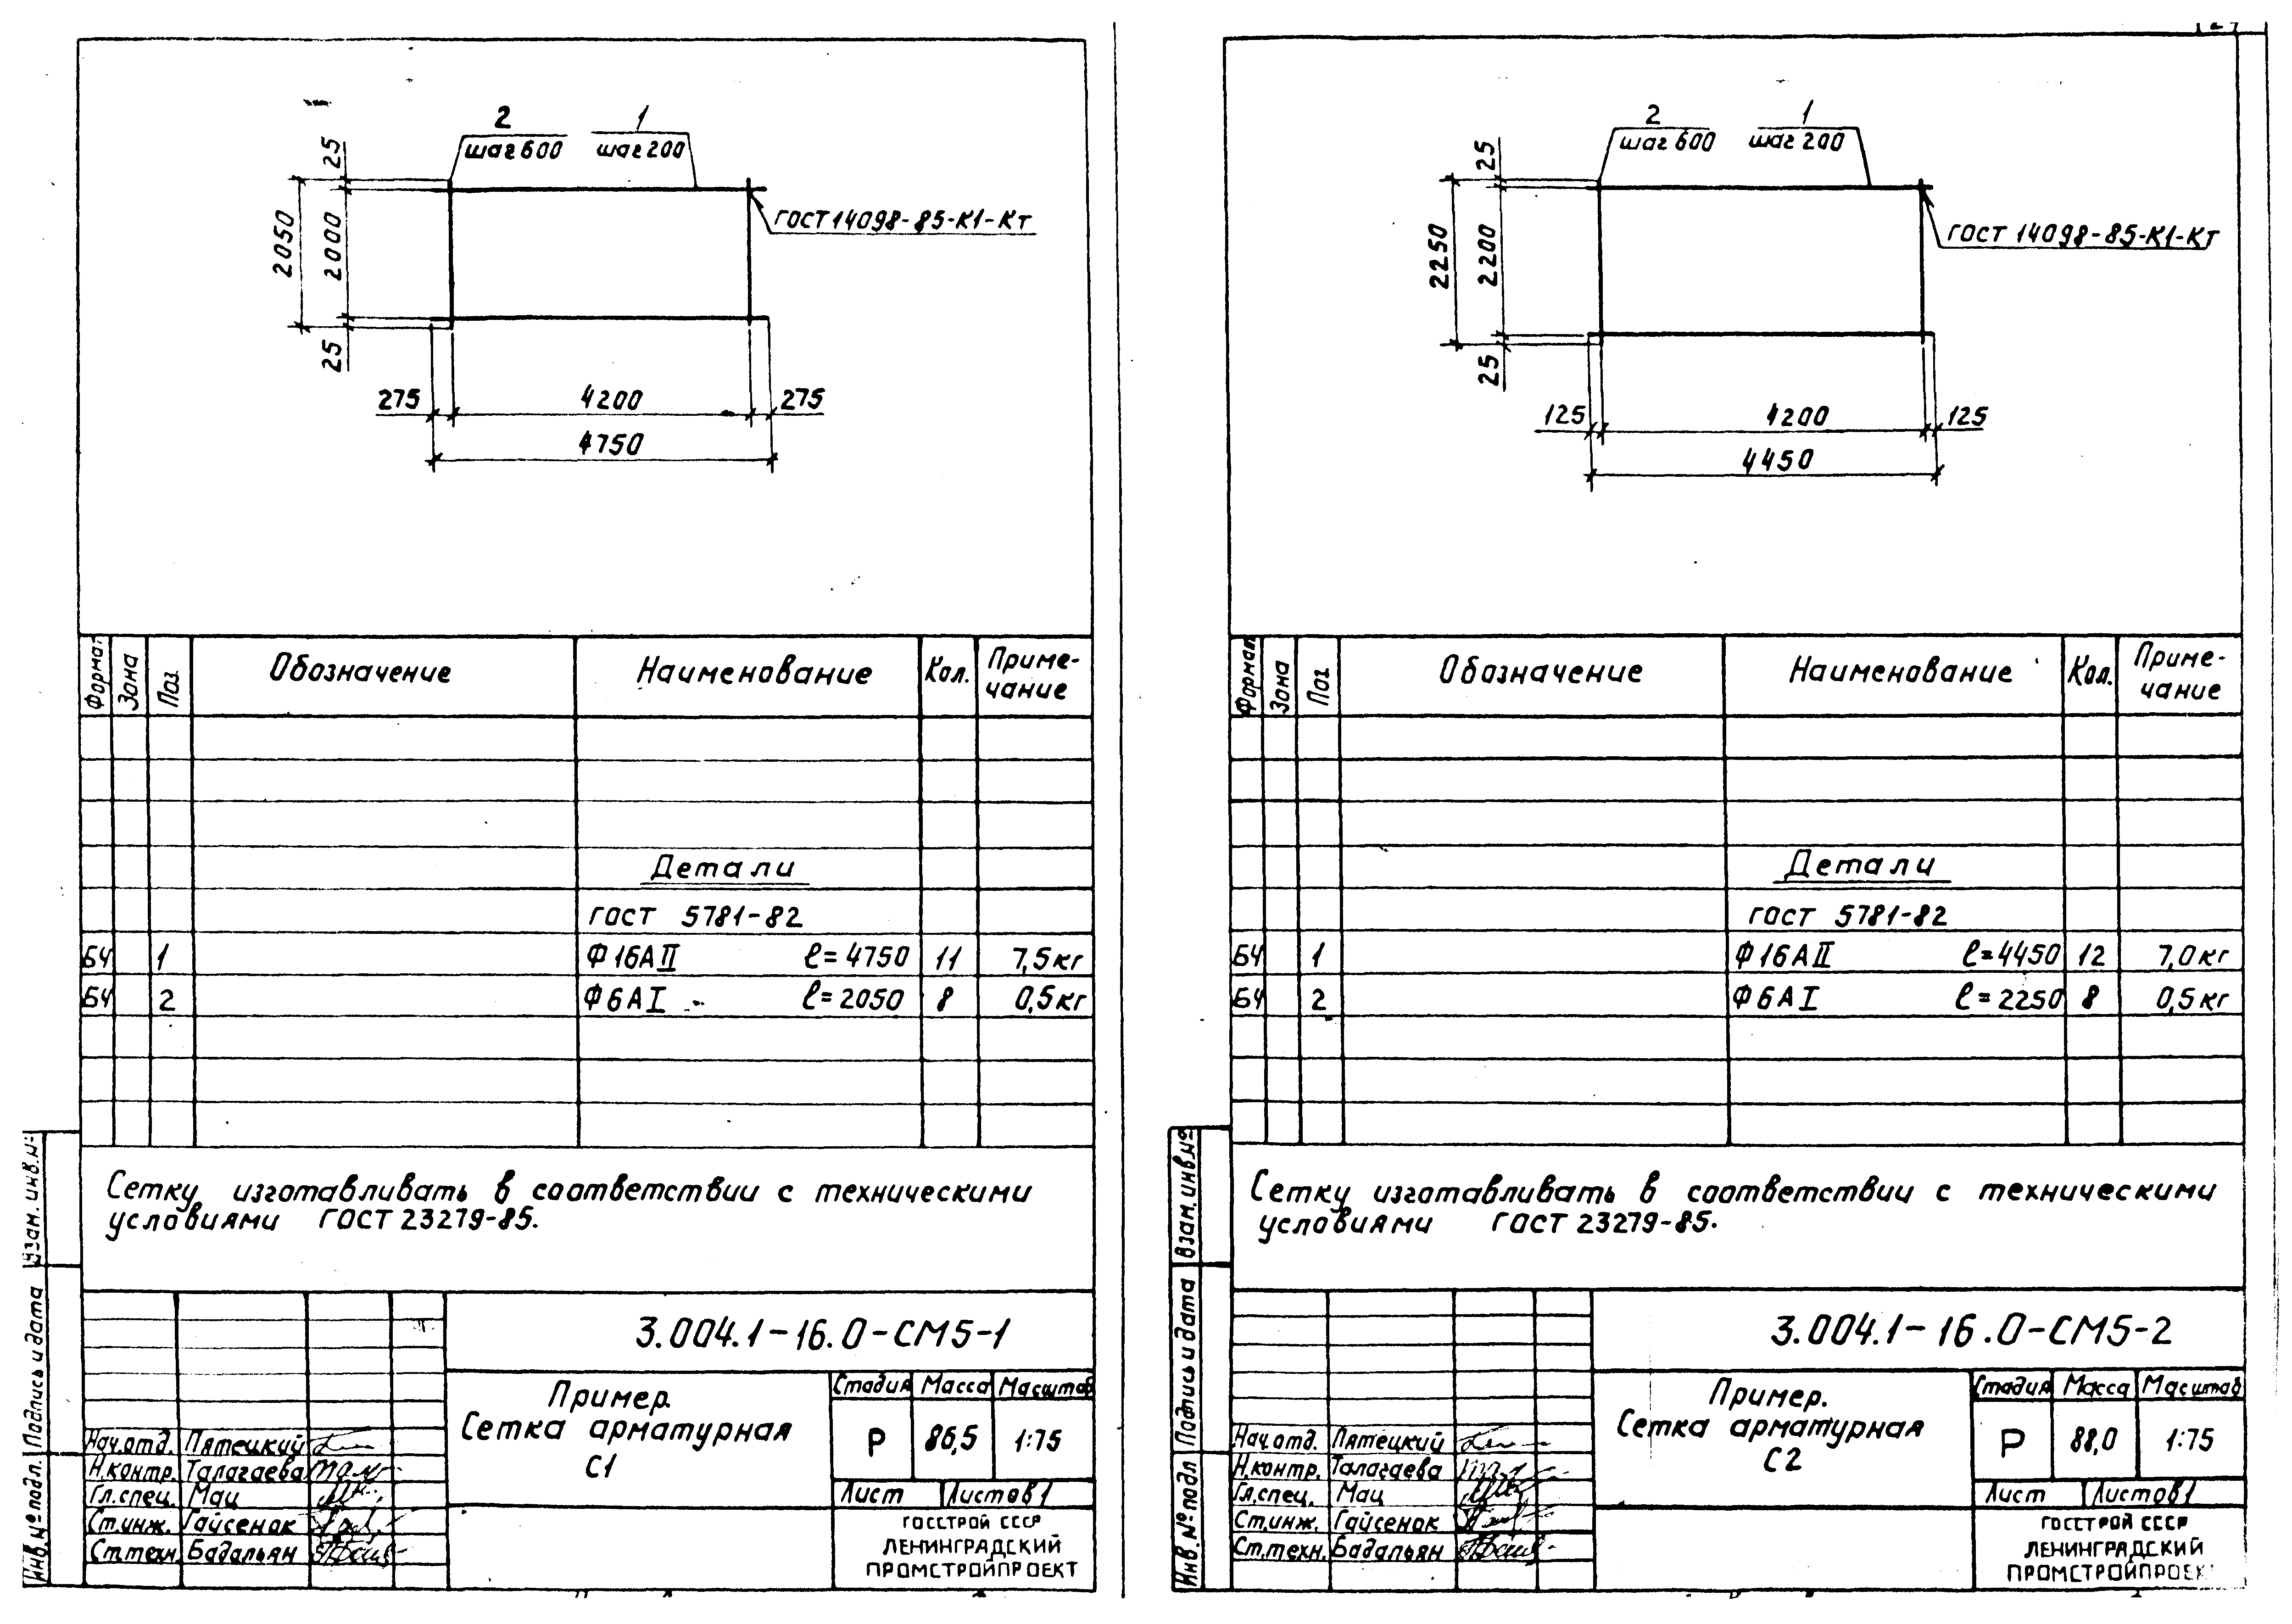 2
шаг 600
1
шаг 200
ГОСТ 14098-85-К1-Кт
25
2000
2050
25
275
4200
275
4750
Формат
Зона
Поз.
Обозначение
Наименование
Кол.
Приме-
чание
Детали
ГОСТ 5781-82
БЧ 1 Ф16АII l=4750 11 7,5кг
БЧ 2 Ф6АI l=2050 8 0,5кг
Сетку изготавливать в соответствии с техническими
условиями ГОСТ 23279-85.
Взам. инв.№
Подпись и дата
Инв.№ подл.
3.004.1-16.0-СМ5-1
Пример.
Сетка арматурная
С1
Стадия Масса Масштаб
Р 86,5 1:75
Лист Листов 1
ГОССТРОЙ СССР
ЛЕНИНГРАДСКИЙ
ПРОМСТРОЙПРОЕКТ
Нач.отд. Пятецкий
Н.контр. Талагаева
Гл.спец. Мац
Ст.инж. Гайсенок
Ст.техн. Бадальян
2
шаг 600
1
шаг 200
ГОСТ 14098-85-К1-Кт
25
2200
2250
25
125
4200
125
4450
Формат
Зона
Поз
Обозначение
Наименование
Кол.
Приме-
чание
Детали
ГОСТ 5781-82
БЧ 1 Ф16АII l=4450 12 7,0кг
БЧ 2 Ф6АI l=2250 8 0,5кг
Сетку изготавливать в соответствии с техническими
условиями ГОСТ 23279-85.
Взам. инв.№
Подпись и дата
Инв.№ подл
3.004.1-16.0-СМ5-2
Пример.
Сетка арматурная
С2
Стадия Масса Масштаб
Р 88,0 1:75
Лист Листов 1
ГОССТРОЙ СССР
ЛЕНИНГРАДСКИЙ
ПРОМСТРОЙПРОЕКТ
Нач.отд. Пятецкий
Н.контр. Талагаева
Гл.спец. Мац
Ст.инж. Гайсенок
Ст.техн. Бадальян